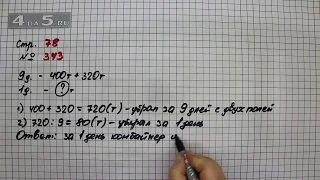 4 ДП 5 .RU
Стр. 78
№ 343
9д. - 400т + 320т
1д. - ? т
1) 400 + 320 = 720(т) - убрал за 9 дней с двух полей
2) 720 : 9 = 80(т) - убрал за 1 день
Ответ: за 1 день комбайнер и